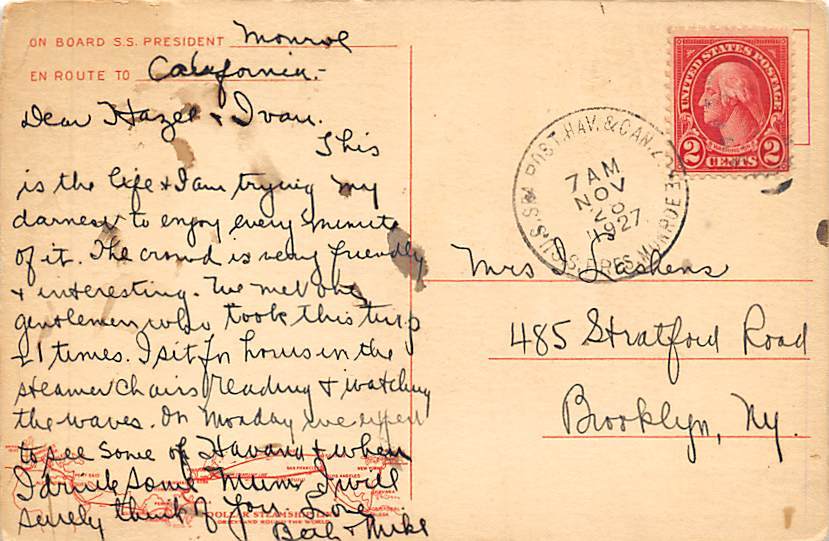 ON BOARD S.S. PRESIDENT Monroe
EN ROUTE TO California.-
Dear Hazel & Ivan.
This
is the life & I am trying my
darnest to enjoy every minute
of it. The crowd is very friendly
& interesting. We met one
gentlemen who took this trip
21 times. I sit for hours in the
steamer chairs reading & watching
the waves. On Monday we expect
to see some of Havana & when
I drink some Mumm I will
surely think of you. Love
Beth & Mike
DOLLAR STEAMSHIP LINE
ORIENT AND ROUND THE WORLD
UNITED STATES POSTAGE
2 CENTS 2
U.S. SEA POST. HAV. & CAN. Z.
7 AM
NOV
26
1927
S.S. PRES. MONROE
Mrs I Lashens
485 Stratford Road
Brooklyn, Ny.